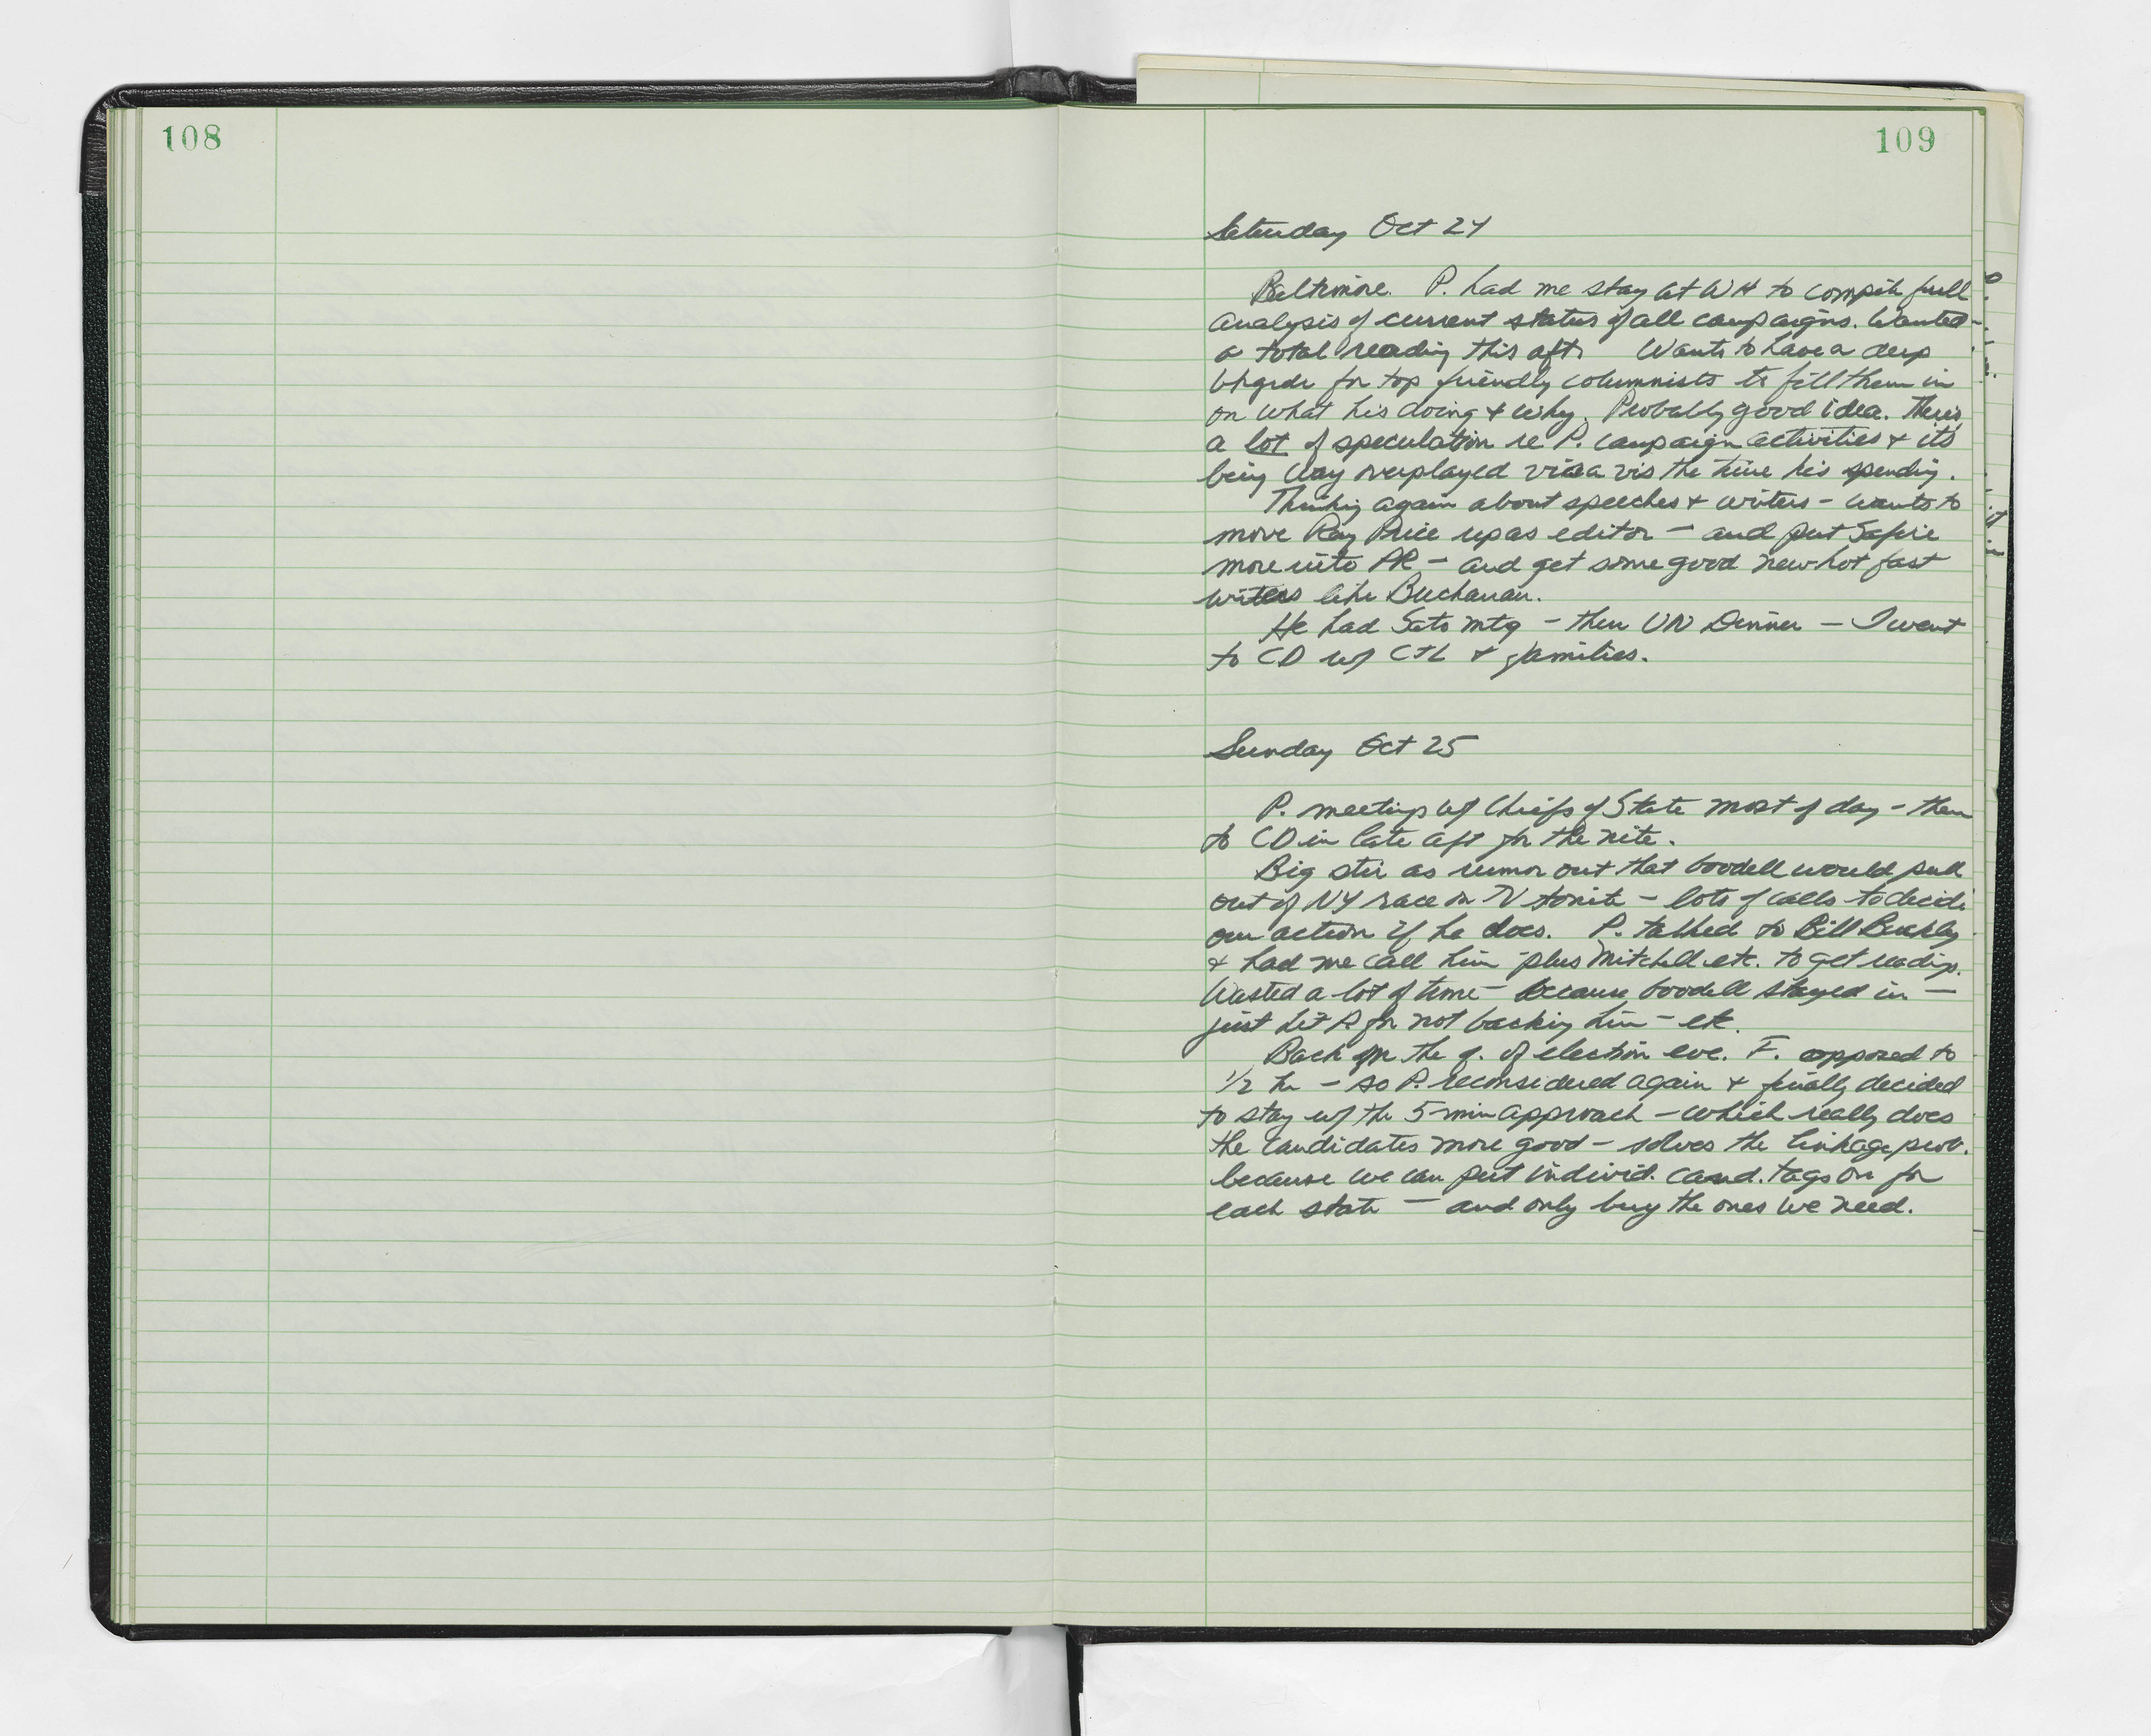 108
109
Saturday Oct 24
Baltimore. P. had me stay at WH to compile full
analysis of current status of all campaigns. Wanted
a total reading this aft. Wants to have a deep
bkgrdr for top friendly columnists to fill them in
on what his doing & why. Probably good idea. There's
a lot of speculation re P. campaign activities & its
being way overplayed vis a vis the time his spending.
Thinking again about speeches & writers - wants to
move Ray Price up as editor - and put Safire
more into PR - and get some good new hot fast
writers like Buchanan.
He had Sato mtg - then UN Dinner - I went
to CD w/ families.
Sunday Oct 25
P. meetings w/ Chiefs of State most of day - then
to CD in late aft for the nite.
Big stir as rumor out that Goodell would pull
out of NY race on TV tonite - lots of calls to decide
our action if he does. P. talked to Bill Buckley
& had me call him plus Mitchell etc. to get readings.
Wasted a lot of time - because Goodell stayed in -
just hit P. for not backing him - etc.
Back on the q. of election eve. F. opposed to
1/2 hr - so P. reconsidered again & finally decided
to stay w/ the 5 min approach - which really does
the candidates more good - solves the linkage prob.
because we can put individ. cand. tags on for
each state - and only buy the ones we need.